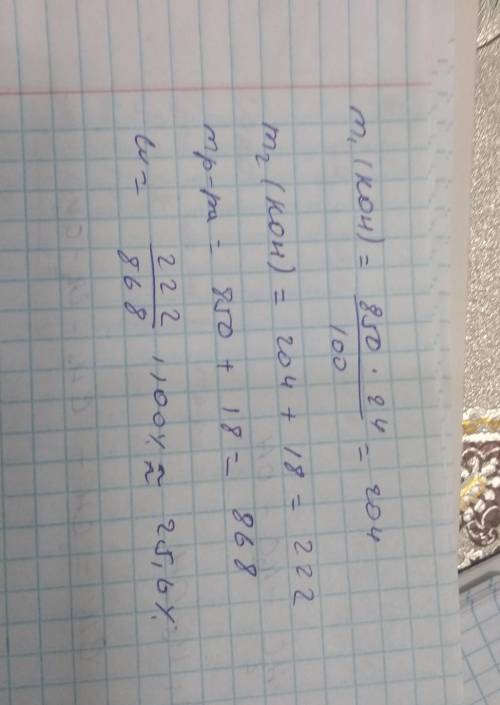 m₁(KOH) = 850 · 24 / 100 = 204
m₂(KOH) = 204 + 18 = 222
mр-ра = 850 + 18 = 868
w = 222 / 868 · 100% ≈ 25,6%